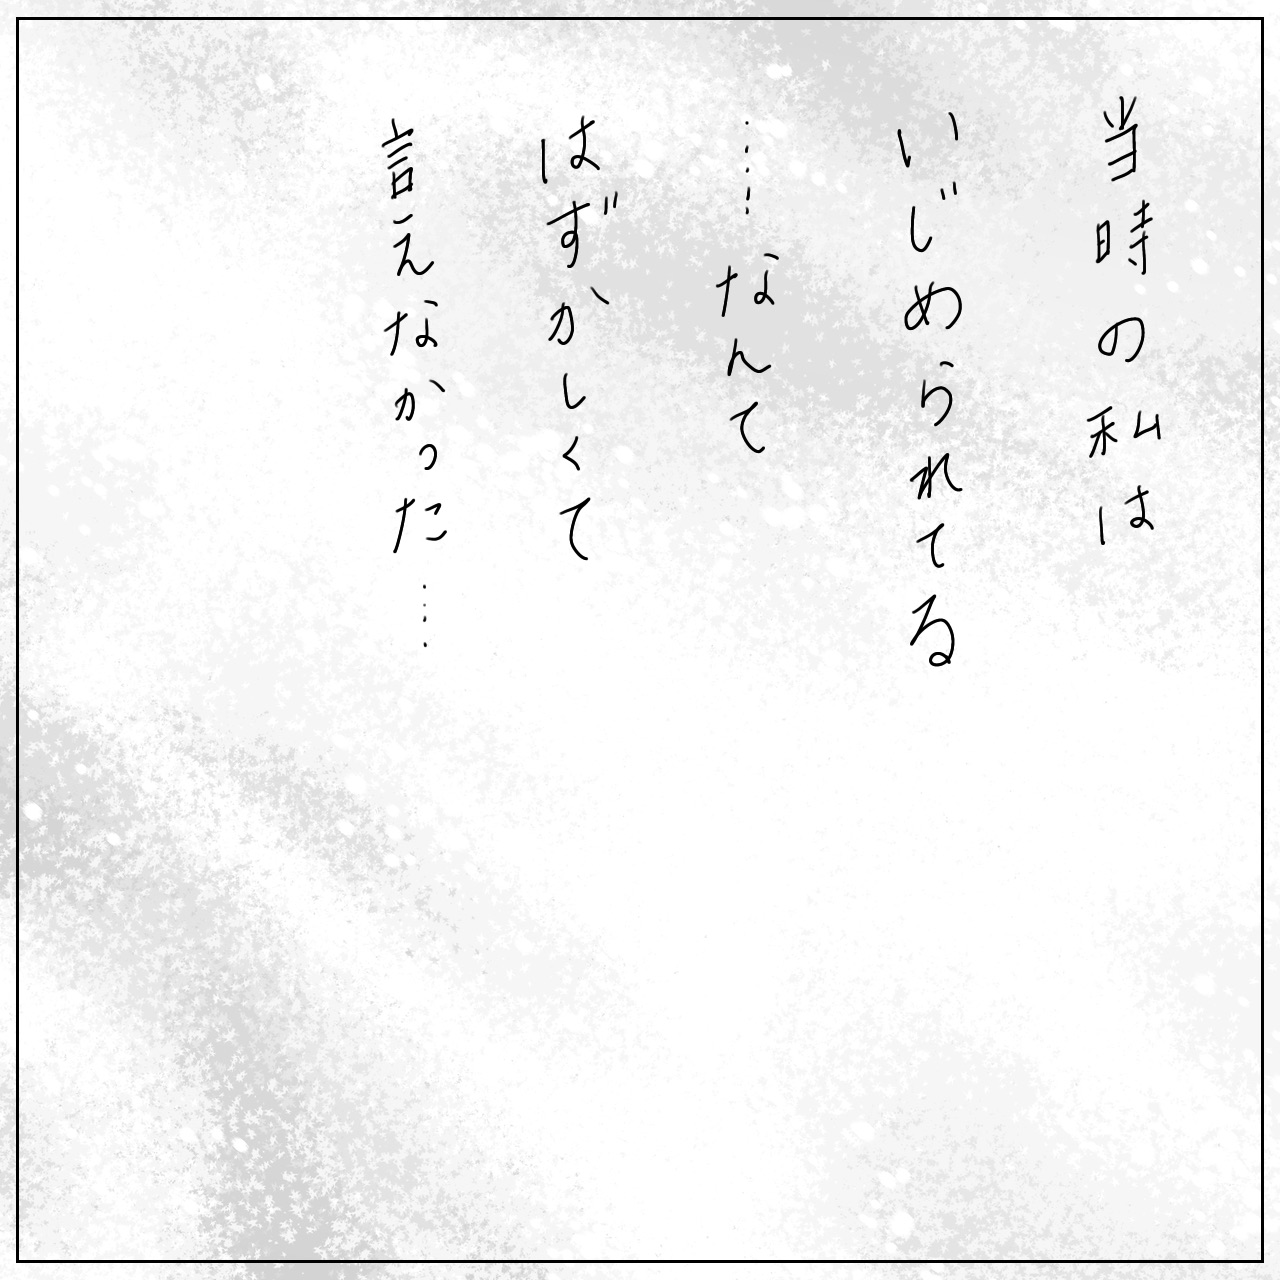 当時の私は
いじめられてる
……なんて
はずかしくて
言えなかった……